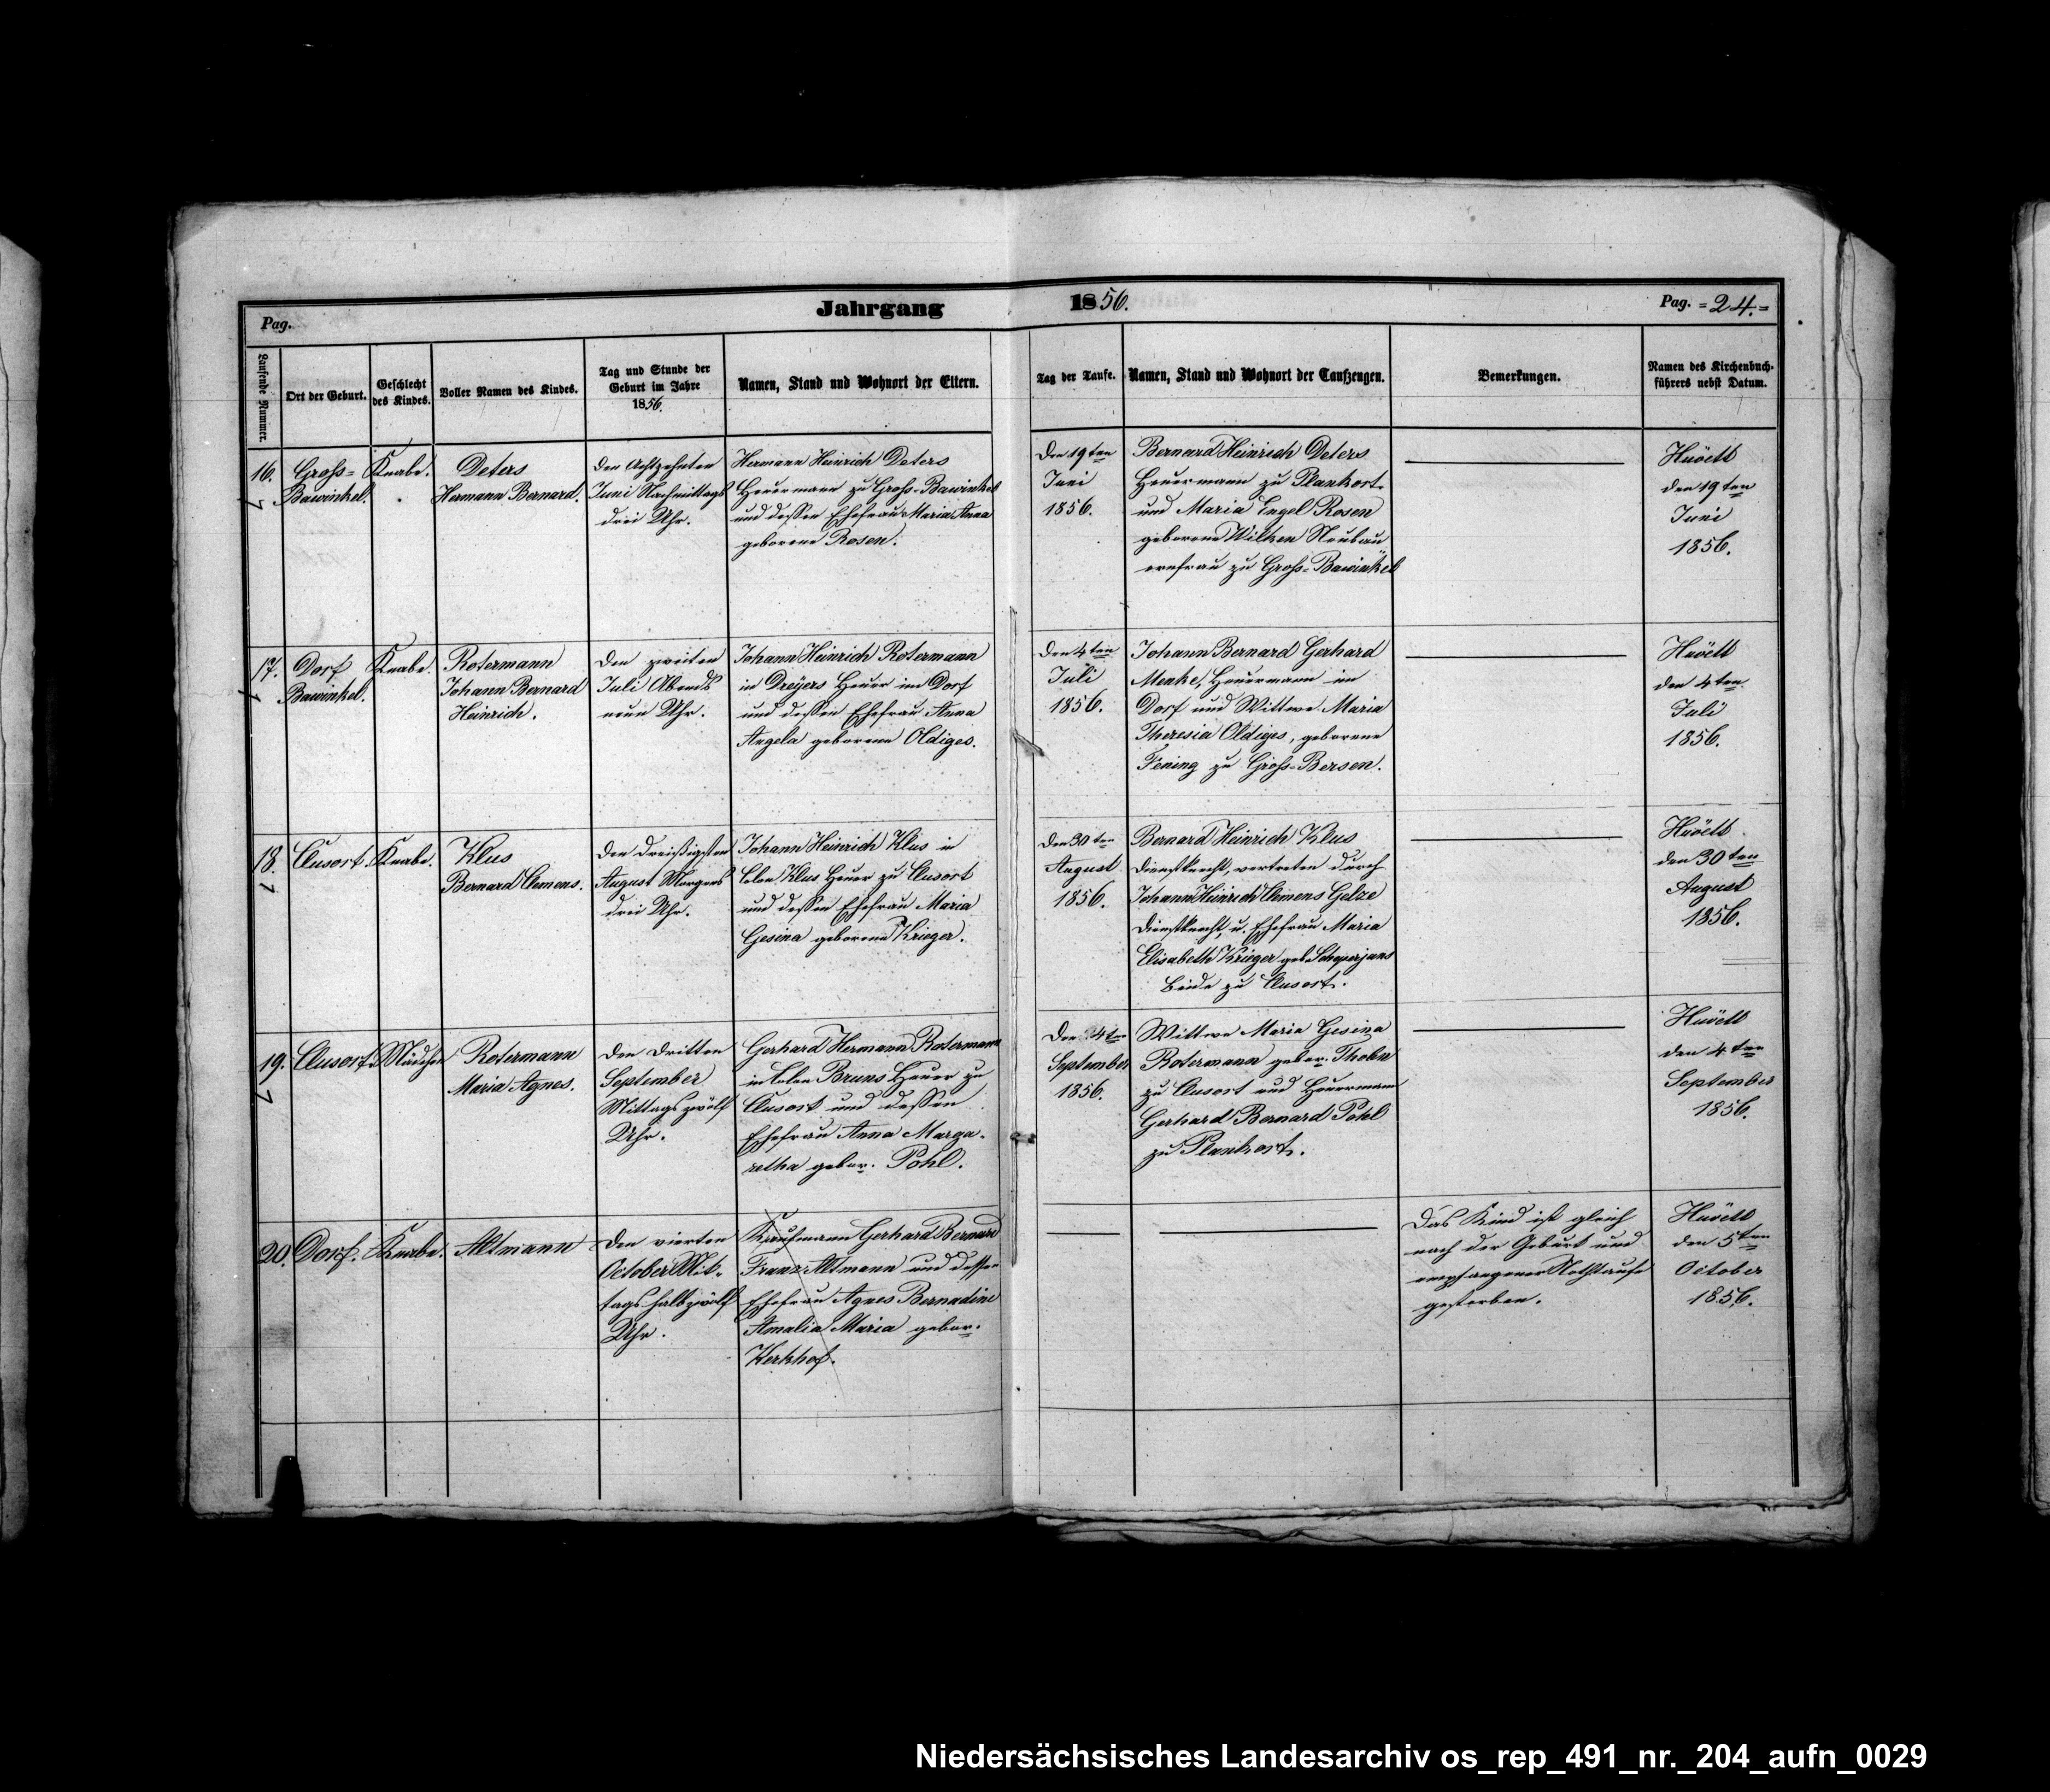 Pag.
Jahrgang 1856.
Pag. =24.=
Laufende Nummer.
Ort der Geburt.
Geschlecht
des Kindes.
Voller Namen des Kindes.
Tag und Stunde der
Geburt im Jahre
1856.
Namen, Stand und Wohnort der Eltern.
Tag der Taufe.
Namen, Stand und Wohnort der Taufzeugen.
Bemerkungen.
Namen des Kirchenbuch-
führers nebst Datum.
16.
Groß=
Bawinkel.
Knabe.
Deters
Hermann Bernard.
Den Achtzehnten
Juni Nachmittags
drei Uhr.
Hermann Heinrich Deters
Heuermann zu Groß-Bawinkel
und dessen Ehefrau Maria Anna
geborene Rosen.
Den 19ten
Juni
1856.
Bernard Heinrich Deters
Heuermann zu Plankort
und Maria Engel Rosen
geborene Wilken Neubau
ernfrau zu Groß-Bawinkel
den 19ten
Juni
1856.
17.
Dorf
Bawinkel.
Knabe.
Rotermann
Johann Bernard
Heinrich.
Den zweiten
Juli Abends
neun Uhr.
Johann Heinrich Rotermann
in Dreyers Heuer im Dorf
und dessen Ehefrau Anna
Angela geborene Oldiges.
Den 4ten
Juli
1856.
Johann Bernard Gerhard
Menke, Heuermann im
Dorf und Wittwe Maria
Theresia Oldiges, geborene
Fening zu Groß-Bersen.
den 4ten
Juli
1856.
18.
Clusort.
Knabe.
Klus
Bernard Clemens.
Den dreißigsten
August Morgens
drei Uhr.
Johann Heinrich Klus in
Colon Klus Heuer zu Clusort
und dessen Ehefrau Maria
Gesina geborene Krieger.
Den 30ten
August
1856.
Bernard Heinrich Klus
Dienstknecht, vertreten durch
Johann Heinrich Clemens Gelze
Dienstknecht, u. Ehefrau Maria
Elisabeth Krieger geb. Scheperjans
beide zu Clusort.
den 30ten
August
1856.
19.
Clusort.
Mädchen
Rotermann
Maria Agnes.
Den dritten
September
Mittags zwölf
Uhr.
Gerhard Hermann Rotermann
in Colon Bruns Heuer zu
Clusort und dessen
Ehefrau Anna Marga-
retha gebor. Pohl.
Den 4ten
September
1856.
Wittwe Maria Gesina
Rotermann gebor. Tholn
zu Clusort und Heuermann
Gerhard Bernard Pohl
zu Plankort.
den 4ten
September
1856.
20.
Dorf.
Knabe.
Altmann
Den vierten
October Mit-
tags halbzwölf
Uhr.
Kaufmann Gerhard Bernard
Franz Altmann und dessen
Ehefrau Agnes Bernadine
Amalia Maria gebor.
Kerkhof.
Das Kind ist gleich
nach der Geburt und
empfangener Nothtaufe
gestorben.
den 5ten
October
1856.
Niedersächsisches Landesarchiv os_rep_491_nr._204_aufn_0029